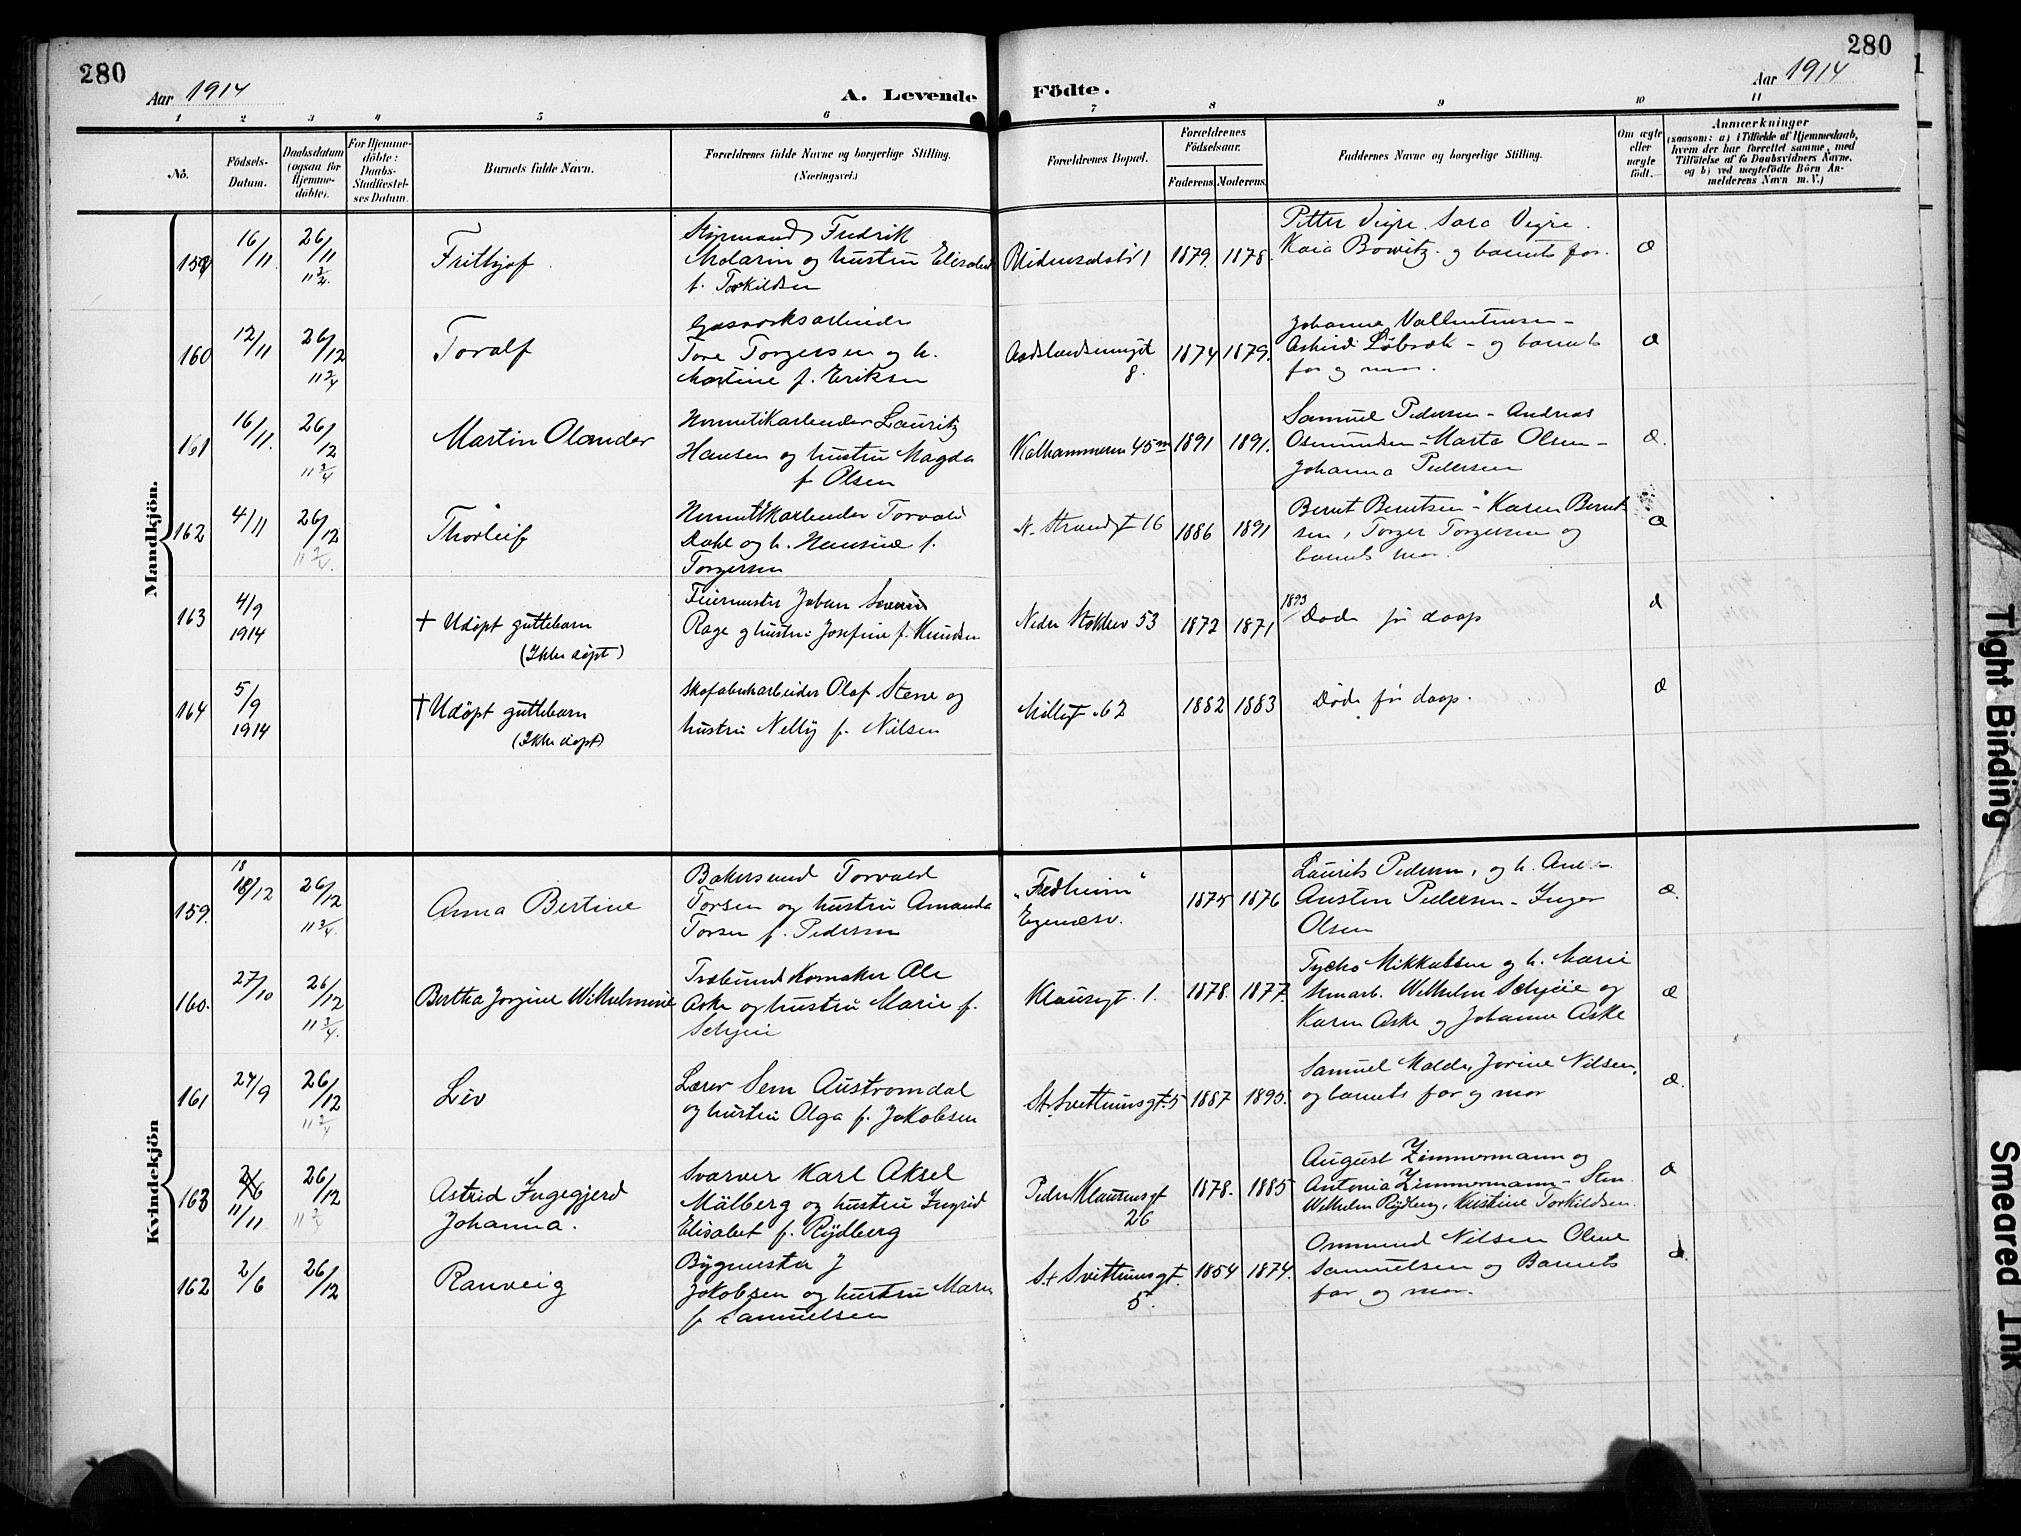 280
280
Aar 1914
A. Levende Födte.
Aar 1914
1 2 3 4 5 6 7 8 9 10 11
No.
Födsels-Datum.
Daabsdatum (ogsaa for Hjemme-döbte).
For Hjemme-döbte: Daabs-Stadfæstel-ses Datum.
Barnets fulde Navn.
Forældrenes fulde Navne og borgerlige Stilling.
(Næringsvei.)
Forældrenes Bopæl.
Forældrenes Födselsaar.
Faderens. Moderens.
Faddernes Navne og borgerlige Stilling.
Om ægte eller uægte födt.
Anmærkninger
(saasom: a) i Tilfælde af Hjemmedaab, hvem der har forrettet samme, med Tilföielse af to Daabsvidners Navne, og b) ved uægtefödte Börn An-melderens Navn m. V.)
Mandkjön.
159 16/11 26/11 11 3/4 Frithjof
Styrmand Fredrik
og hustru Elisabet
f. Torkildsen
1879. 1878.
Petter Vigre. Sara Vigre.
Kaia Bowitz. og barnets far. æ
160 12/11 26/12 11 3/4 Toralf
Gasverksarbeider
Tore Torgersen og h.
Martine f. Eriksen
8. 1874 1879.
Johanne Vallentinsen –
– og barnets
far og mor. æ
161 16/11. 26/12 11 3/4 Martin Olander
Hermetikarbeider Lauritz
Hansen og hustru Magda
f Olsen
Kalhammeren 45 1891 1891.
Samuel Pedersen – Andreas
Osmundsen – Marta Olsen –
Johanna Pedersen æ.
162 4/11 26/12 11 3/4. Thorleif
Hermetikarbeider Torvald
Dahl og h. Hansine f.
Torgersen
N. Strandgt 16 1886 1891
Bernt Berntsen – Karen Bernt
sen, Torger Torgersen og
barnets mor. æ
163 4/9 1914 † Udöpt guttebarn
(Ikke döpt)
Feiermester Johan
Rage og hustru Josefine f. Knudsen
Nedre Stokkev 53 1872 1871
1893
Döde för daap æ
164 5/9 1914 † Udöpt guttebarn
(Ikke döpt)
Skofabrikarbeider Olaf Stene og
hustru Nelly f. Nilsen
Möllegt 62 1882 1883 Döde för daap. æ
Kvindekjön
159. 18 18/12 26/12 11 3/4. Anna Bertine
Bakersvend Torvald
Torsen og hustru Amanda
Torsen f. Pedersen
"Fredheim"
Egenæsv. 1875 1876
Laurits Pedersen, og h. Ane –
Austen Pedersen – Inger
Olsen æ.
160. 27/10 26/12 11 3/4. Bertha Jorgine Wilhelmine
Ole
Aske og hustru Marie f.
Schjeie
Klausegt. 1. 1878. 1877.
Tycho Mikkelsen og h. Marie
Wilhelm Schjeie og
Karen Aske og Johanne Aske æ
161 27/9 26/12 11 3/4 Liv
Lærer Sem Austromdal
og hustru Olga f. Jakobsen
St. Svithunsgt. 5 1887 1895.
Samuel Malde, Jorine Nilsen,
og barnets far og mor æ.
163 11/11 26/12 11 3/4 Astrid Ingegjerd
Johanna.
Svarver Karl Aksel
Målberg og hustru Ingrid
Elisabet f. Rydberg
Peder Klausensgt
26 1878. 1885
August Zimmermann og
Antonia Zimmermann – Sten
Wilhelm Rydberg, Kristine Torkildsen. æ
162 2/6 26/12 Ranveig
Bygmester J
Jakobsen og hustru Maren
f Samuelsen
St Svithunsgt.
5. 1854 1874.
Ommund Nilsen Oline
Samuelsen og Barnets
far og mor. æ.
Tight Binding
Smeared Ink